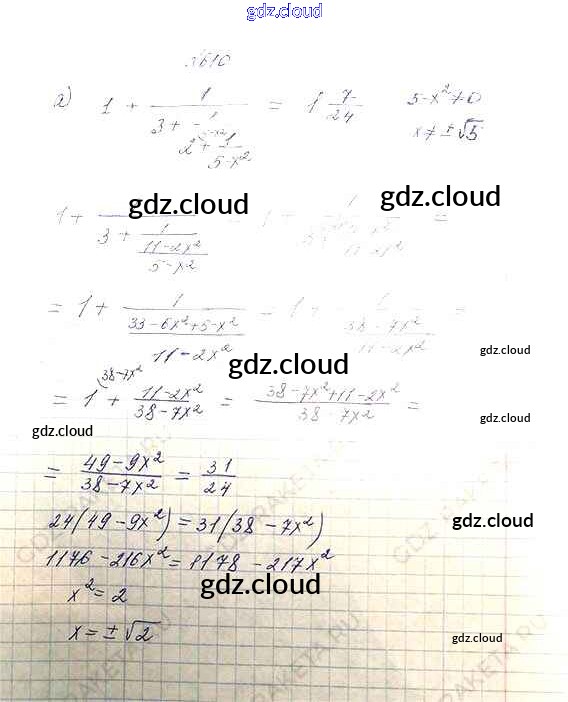 gdz.cloud
№610
а) 1 + 1/(3 + 1/(2 + 1/(5-x²))) = 1 7/24 5-x²≠0
x≠±√5
gdz.cloud gdz.cloud
1 + 1/(3 + 1/((11-2x²)/(5-x²))) = 1 +
= 1 + 1/((33-6x²+5-x²)/(11-2x²)) = 1 + 1/((38-7x²)/(11-2x²)) =
gdz.cloud
gdz.cloud
= 1 (38-7x² + (11-2x²)/(38-7x²) = (38-7x²+11-2x²)/(38-7x²) =
gdz.cloud
gdz.cloud
= (49-9x²)/(38-7x²) = 31/24
24(49-9x²)=31(38-7x²)
gdz.cloud
1176-216x²=1178-217x²
x²=2
gdz.cloud
x=±√2
gdz.cloud